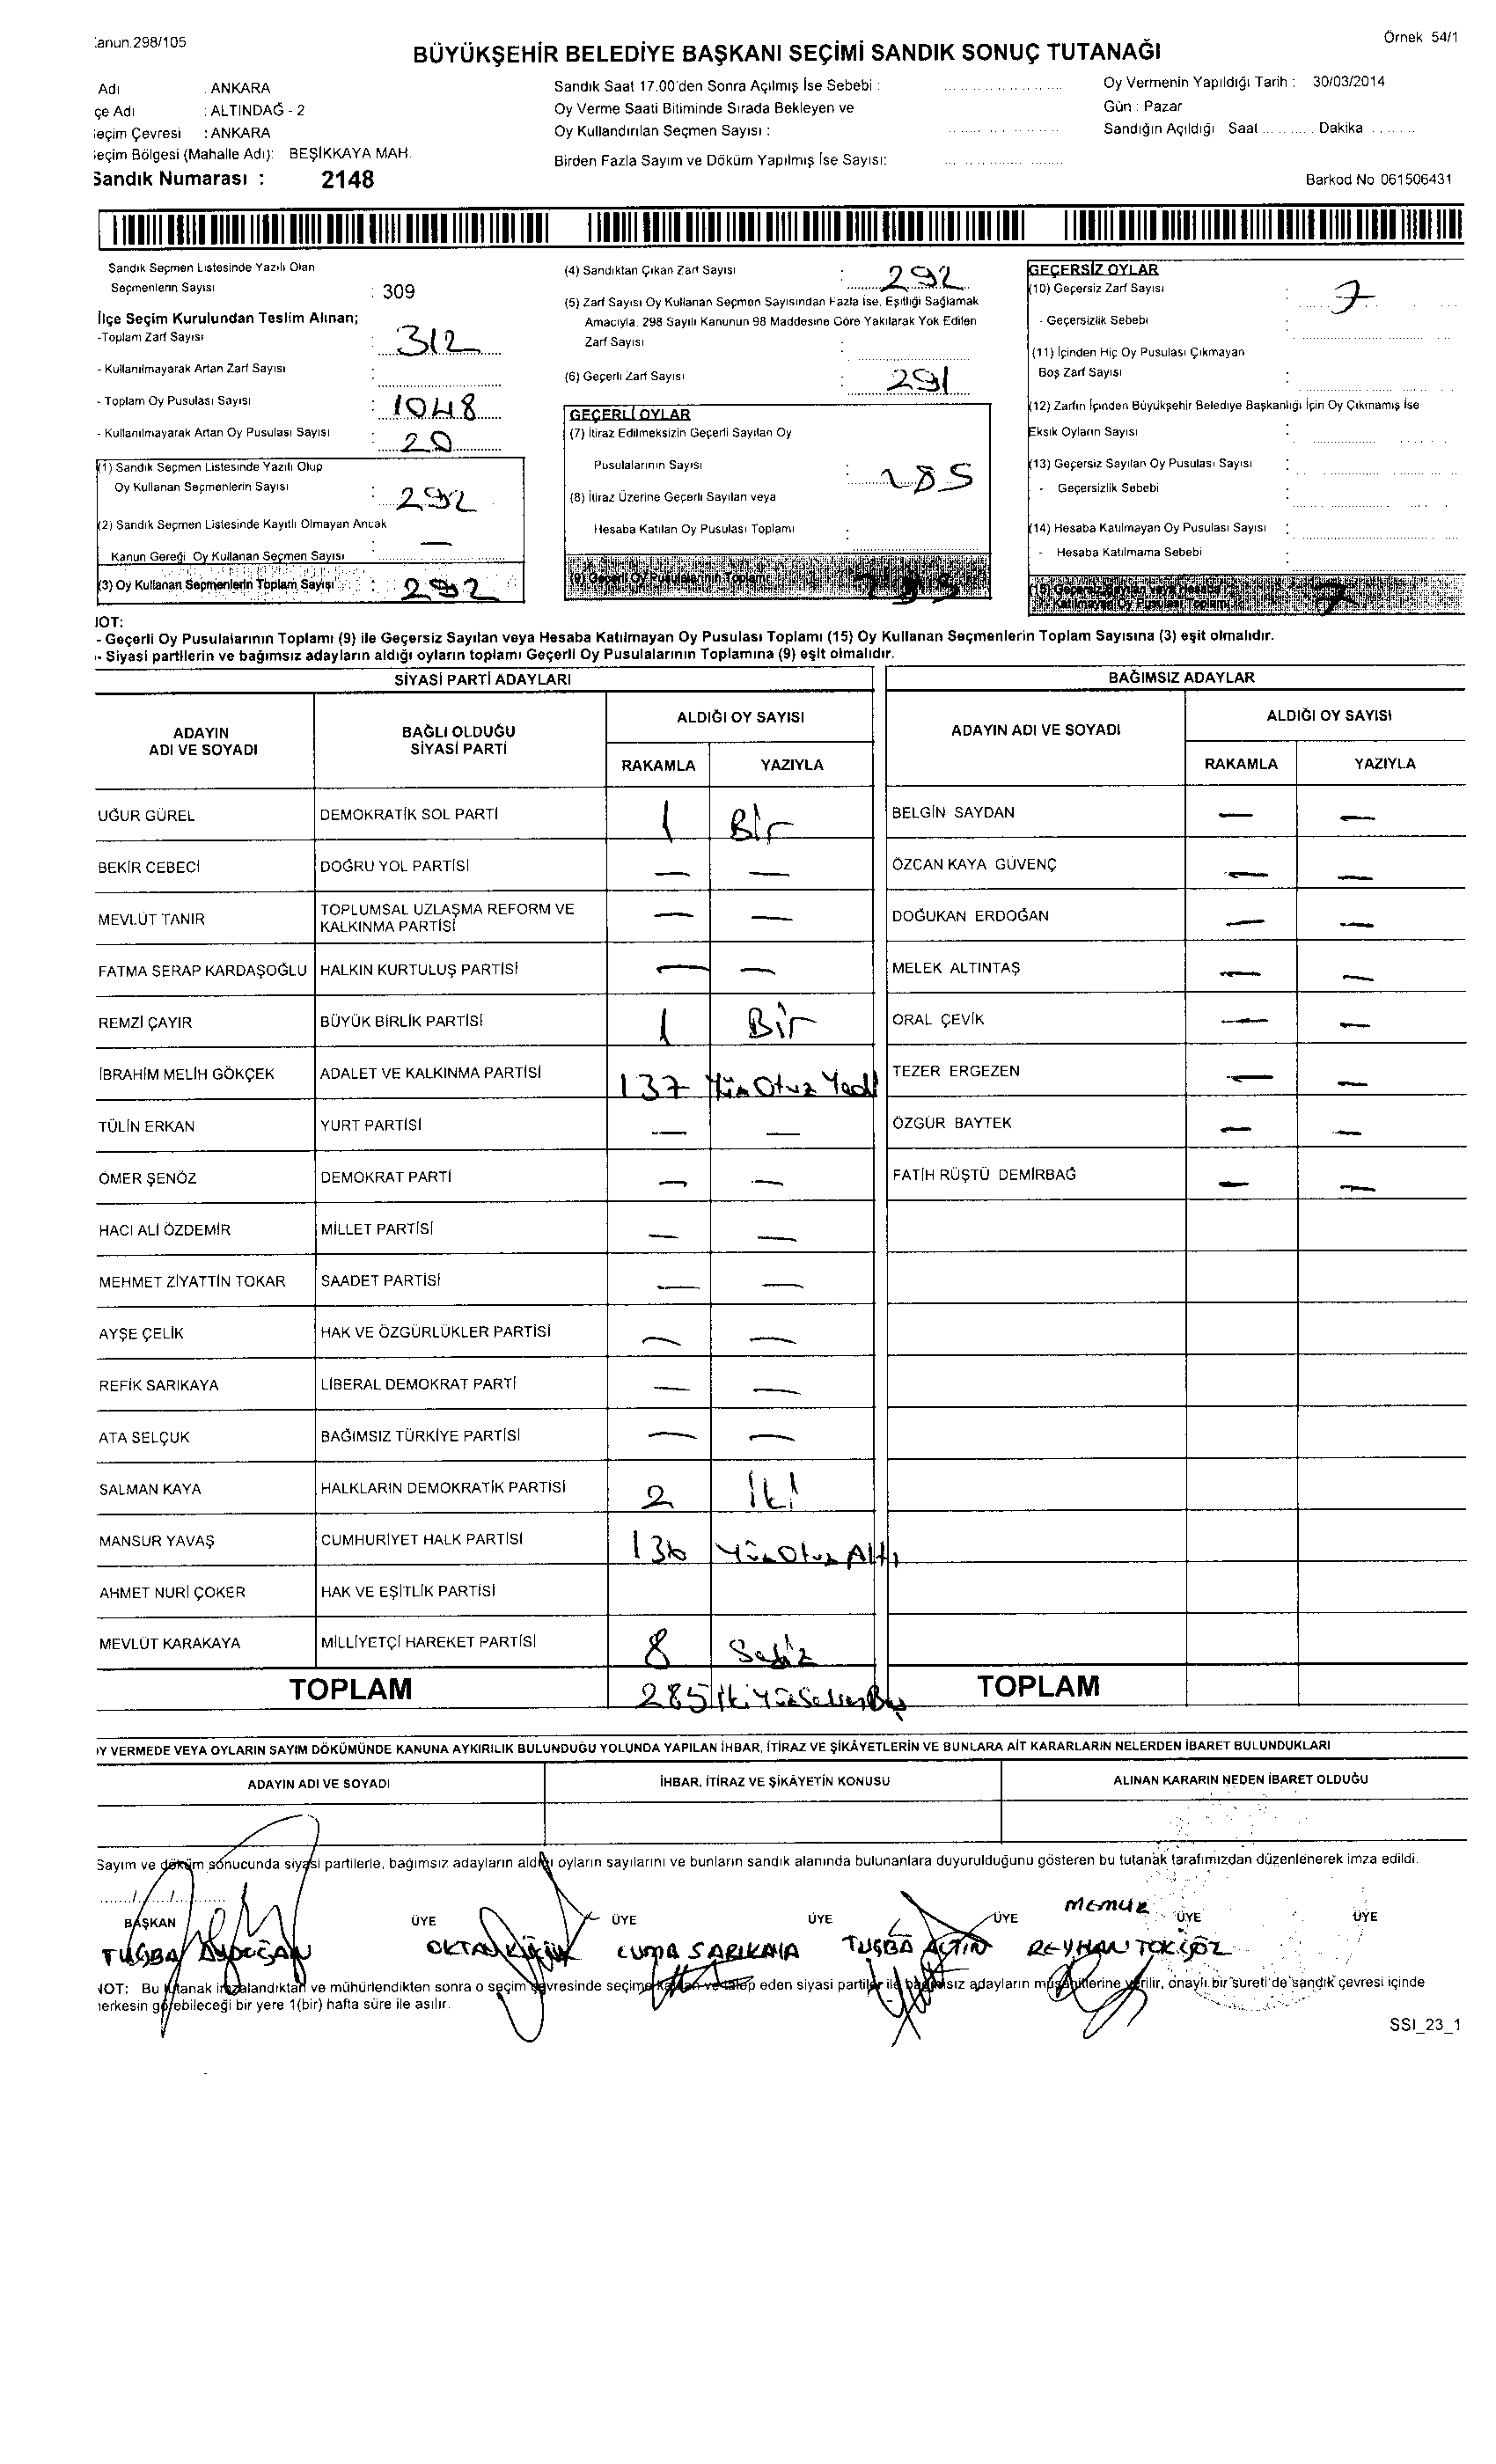 Kanun.298/105
Örnek 54/1
BÜYÜKŞEHİR BELEDİYE BAŞKANI SEÇİMİ SANDIK SONUÇ TUTANAĞI
Adı : ANKARA
çe Adı : ALTINDAĞ - 2
eçim Çevresi : ANKARA
eçim Bölgesi (Mahalle Adı): BEŞİKKAYA MAH.
Sandık Numarası : 2148
Sandık Saat 17.00'den Sonra Açılmış İse Sebebi :
Oy Verme Saati Bitiminde Sırada Bekleyen ve
Oy Kullandırılan Seçmen Sayısı :
Birden Fazla Sayım ve Döküm Yapılmış İse Sayısı:
Oy Vermenin Yapıldığı Tarih : 30/03/2014
Gün : Pazar
Sandığın Açıldığı Saat ........... Dakika ........
Barkod No 061506431
Sandık Seçmen Listesinde Yazılı Olan
Seçmenlerin Sayısı : 309
İlçe Seçim Kurulundan Teslim Alınan;
-Toplam Zarf Sayısı : 312
- Kullanılmayarak Artan Zarf Sayısı :
- Toplam Oy Pusulası Sayısı : 1048
- Kullanılmayarak Artan Oy Pusulası Sayısı : 20
(1) Sandık Seçmen Listesinde Yazılı Olup
Oy Kullanan Seçmenlerin Sayısı : 292
(2) Sandık Seçmen Listesinde Kayıtlı Olmayan Ancak
Kanun Gereği Oy Kullanan Seçmen Sayısı : —
(3) Oy Kullanan Seçmenlerin Toplam Sayısı : 292
(4) Sandıktan Çıkan Zarf Sayısı : 292
(5) Zarf Sayısı Oy Kullanan Seçmen Sayısından Fazla ise, Eşitliği Sağlamak
Amacıyla, 298 Sayılı Kanunun 98 Maddesine Göre Yakılarak Yok Edilen
Zarf Sayısı :
(6) Geçerli Zarf Sayısı : 291
GEÇERLİ OYLAR
(7) İtiraz Edilmeksizin Geçerli Sayılan Oy
Pusulalarının Sayısı : 285
(8) İtiraz Üzerine Geçerli Sayılan veya
Hesaba Katılan Oy Pusulası Toplamı :
(9) Geçerli Oy Pusulalarının Toplamı 285
GEÇERSİZ OYLAR
(10) Geçersiz Zarf Sayısı : 7
- Geçersizlik Sebebi :
(11) İçinden Hiç Oy Pusulası Çıkmayan
Boş Zarf Sayısı :
(12) Zarfın İçinden Büyükşehir Belediye Başkanlığı İçin Oy Çıkmamış İse
Eksik Oyların Sayısı :
(13) Geçersiz Sayılan Oy Pusulası Sayısı :
- Geçersizlik Sebebi :
(14) Hesaba Katılmayan Oy Pusulası Sayısı :
- Hesaba Katılmama Sebebi :
(15) Geçersiz Sayılan veya Hesaba
Katılmayan Oy Pusulası Toplamı : 7
NOT:
- Geçerli Oy Pusulalarının Toplamı (9) ile Geçersiz Sayılan veya Hesaba Katılmayan Oy Pusulası Toplamı (15) Oy Kullanan Seçmenlerin Toplam Sayısına (3) eşit olmalıdır.
- Siyasi partilerin ve bağımsız adayların aldığı oyların toplamı Geçerli Oy Pusulalarının Toplamına (9) eşit olmalıdır.
SİYASİ PARTİ ADAYLARI
BAĞIMSIZ ADAYLAR
ADAYIN ADI VE SOYADI BAĞLI OLDUĞU SİYASİ PARTİ ALDIĞI OY SAYISI RAKAMLA YAZIYLA
ADAYIN ADI VE SOYADI ALDIĞI OY SAYISI RAKAMLA YAZIYLA
UĞUR GÜREL DEMOKRATİK SOL PARTİ 1 Bir BELGİN SAYDAN — —
BEKİR CEBECİ DOĞRU YOL PARTİSİ — — ÖZCAN KAYA GÜVENÇ — —
MEVLÜT TANIR TOPLUMSAL UZLAŞMA REFORM VE KALKINMA PARTİSİ — — DOĞUKAN ERDOĞAN — —
FATMA SERAP KARDAŞOĞLU HALKIN KURTULUŞ PARTİSİ — — MELEK ALTINTAŞ — —
REMZİ ÇAYIR BÜYÜK BİRLİK PARTİSİ 1 Bir ORAL ÇEVİK — —
İBRAHİM MELİH GÖKÇEK ADALET VE KALKINMA PARTİSİ 137 Yüz Otuz Yedi TEZER ERGEZEN — —
TÜLİN ERKAN YURT PARTİSİ — — ÖZGÜR BAYTEK — —
ÖMER ŞENÖZ DEMOKRAT PARTİ — — FATİH RÜŞTÜ DEMİRBAĞ — —
HACI ALİ ÖZDEMİR MİLLET PARTİSİ — —
MEHMET ZİYATTİN TOKAR SAADET PARTİSİ — —
AYŞE ÇELİK HAK VE ÖZGÜRLÜKLER PARTİSİ — —
REFİK SARIKAYA LİBERAL DEMOKRAT PARTİ — —
ATA SELÇUK BAĞIMSIZ TÜRKİYE PARTİSİ — —
SALMAN KAYA HALKLARIN DEMOKRATİK PARTİSİ 2 İki
MANSUR YAVAŞ CUMHURİYET HALK PARTİSİ 136 Yüz Otuz Altı
AHMET NURİ ÇOKER HAK VE EŞİTLİK PARTİSİ
MEVLÜT KARAKAYA MİLLİYETÇİ HAREKET PARTİSİ 8 Sekiz
TOPLAM 285 İki Yüz Seksen Beş TOPLAM
OY VERMEDE VEYA OYLARIN SAYIM DÖKÜMÜNDE KANUNA AYKIRILIK BULUNDUĞU YOLUNDA YAPILAN İHBAR, İTİRAZ VE ŞİKÂYETLERİN VE BUNLARA AİT KARARLARIN NELERDEN İBARET BULUNDUKLARI
ADAYIN ADI VE SOYADI İHBAR, İTİRAZ VE ŞİKÂYETİN KONUSU ALINAN KARARIN NEDEN İBARET OLDUĞU
Sayım ve döküm sonucunda siyasi partilerle, bağımsız adayların aldığı oyların sayılarını ve bunların sandık alanında bulunanlara duyurulduğunu gösteren bu tutanak tarafımızdan düzenlenerek imza edildi.
....../....../............
MEMUR
BAŞKAN ÜYE ÜYE ÜYE ÜYE ÜYE ÜYE
TUĞBA AYDOĞAN OKTAY KÜÇÜK CUMA SARIKAYA TUĞBA ALTIN REYHAN TOKGÖZ
NOT: Bu tutanak imzalandıktan ve mühürlendikten sonra o seçim çevresinde seçime katılan ve talep eden siyasi partiler ile bağımsız adayların müşahitlerine verilir, onaylı bir sureti de sandık çevresi içinde
herkesin görebileceği bir yere 1(bir) hafta süre ile asılır.
SSI_23_1